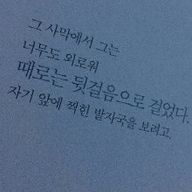 그 사막에서 그는
너무도 외로워
때로는 뒷걸음으로 걸었다.
자기 앞에 찍힌 발자국을 보려고.